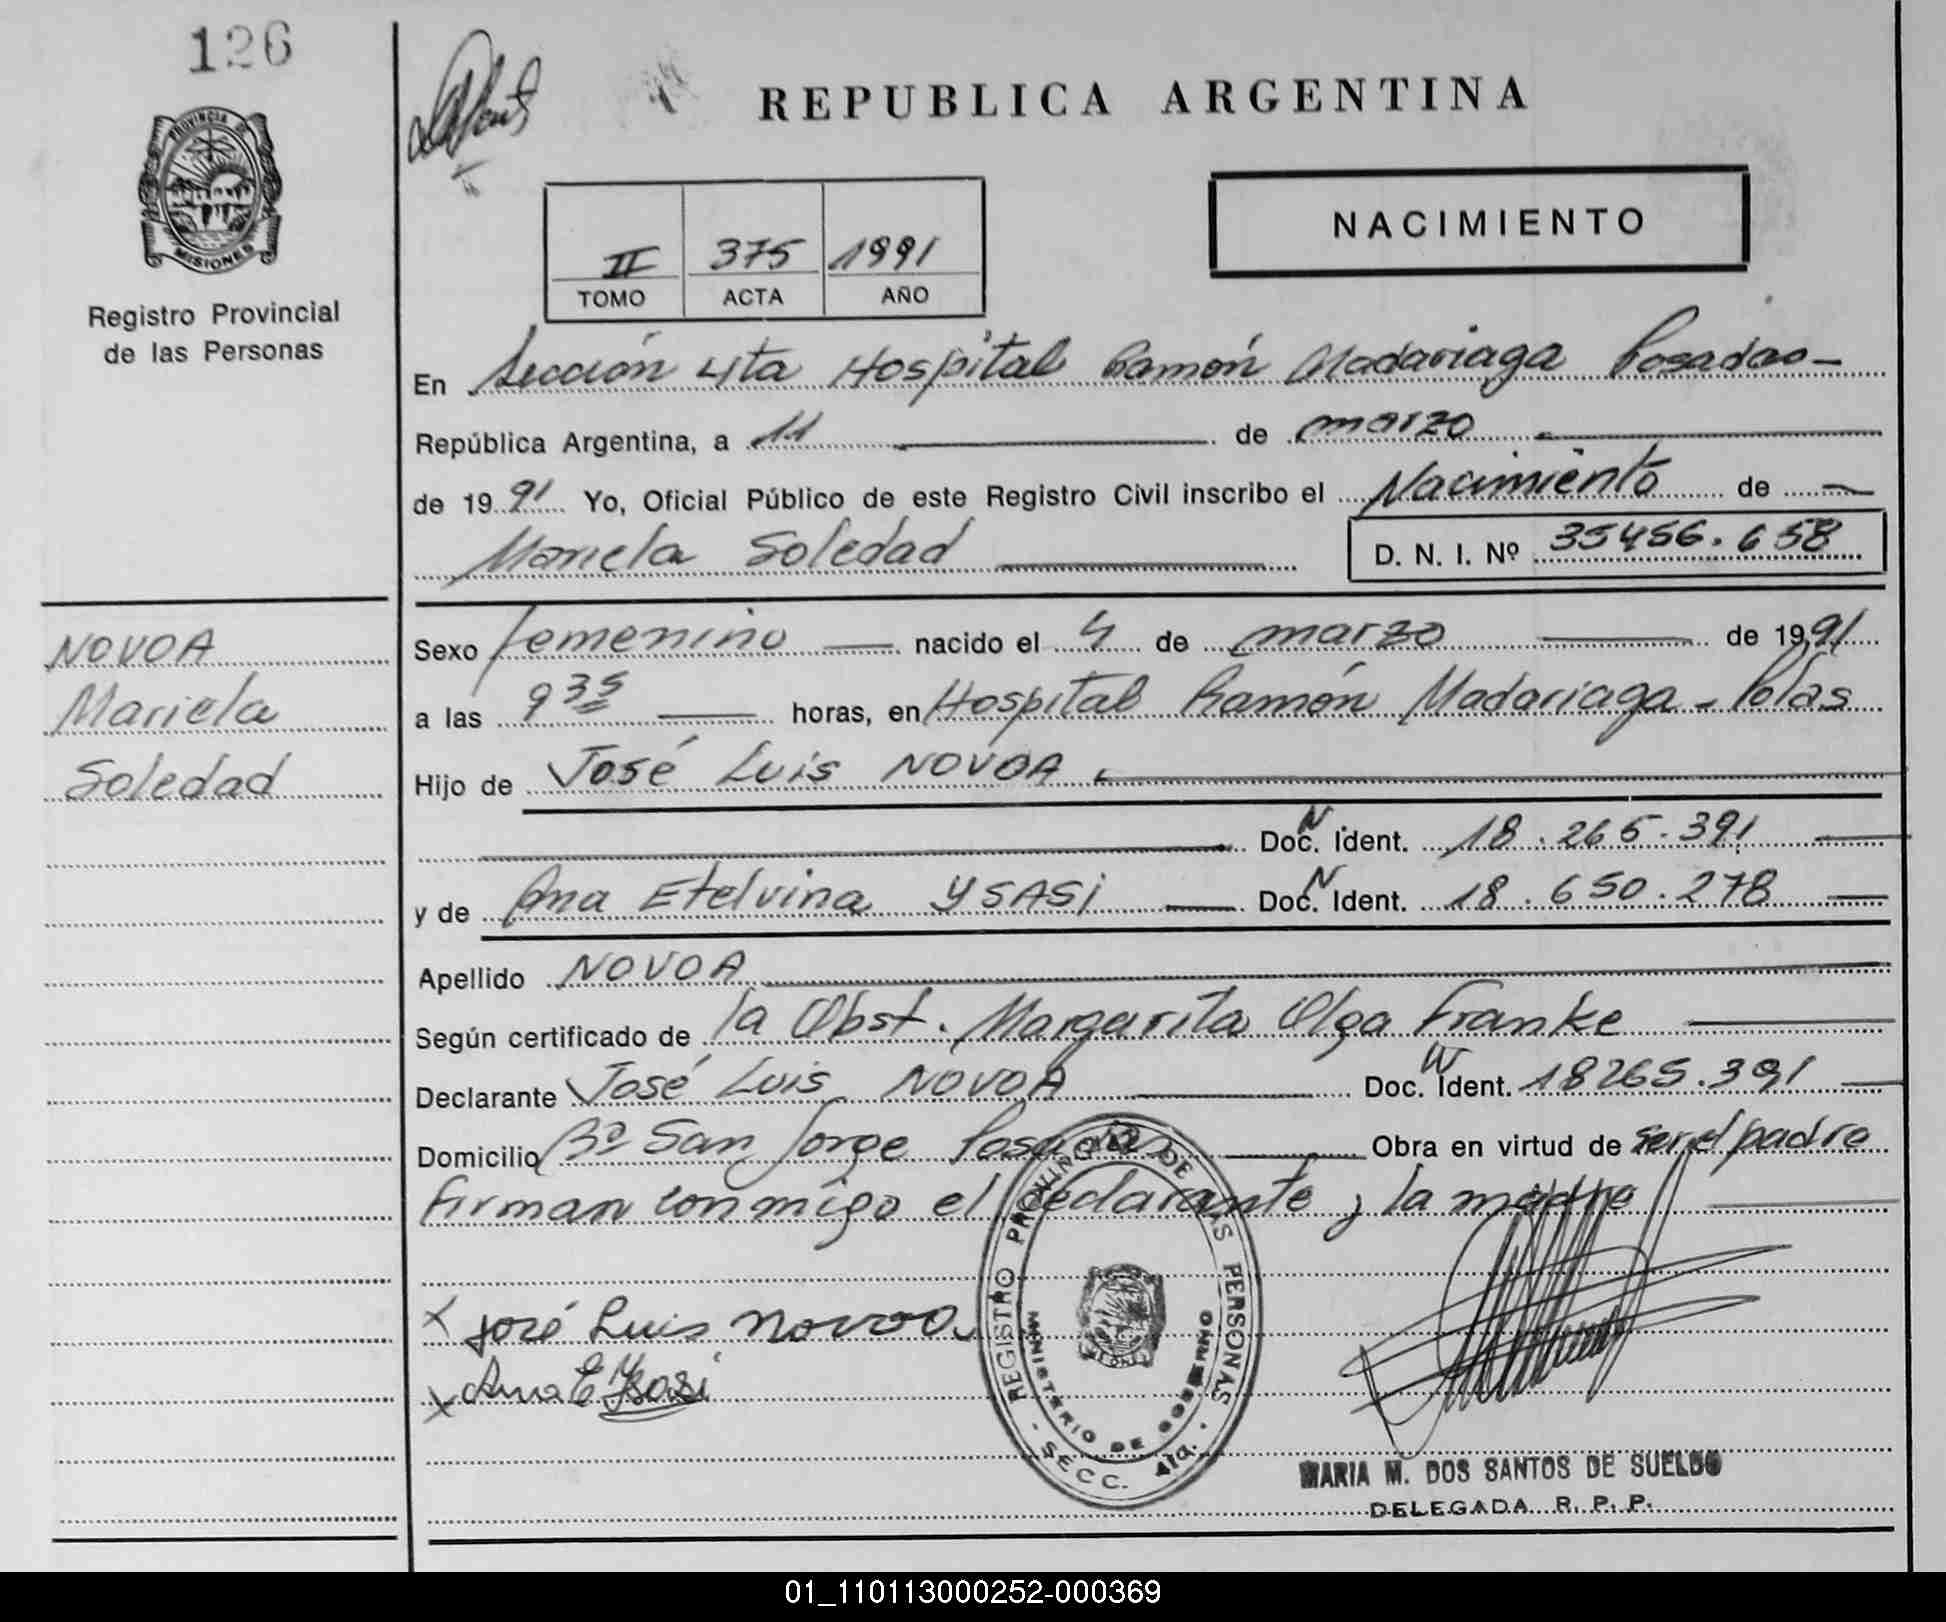 126
PROVINCIA DE
MISIONES
Registro Provincial
de las Personas
REPUBLICA ARGENTINA
NACIMIENTO
II 375 1991
TOMO ACTA AÑO
En Sección 4ta Hospital Ramón Madariaga Posadas
República Argentina, a 11 de marzo
de 1991 Yo, Oficial Público de este Registro Civil inscribo el Nacimiento de
Mariela Soledad D. N. I. Nº 35456.658
NOVOA
Mariela
Soledad
Sexo femenino nacido el 4 de marzo de 1991
a las 9 35 horas, en Hospital Ramón Madariaga - Pdas
Hijo de José Luis NOVOA
Doc. N. Ident. 18.265.391
y de Ana Etelvina YSASI Doc. N. Ident. 18.650.278
Apellido NOVOA
Según certificado de la Obst. Margarita Olga Franke
Declarante José Luis NOVOA Doc. N Ident. 18265.391
Domicilio Bº San Jorge Posadas Obra en virtud de ser el padre
firman conmigo el declarante y la madre
x José Luis Novoa
x Ana E Ysasi
REGISTRO PROVINCIAL DE LAS PERSONAS
MINISTERIO DE GOBIERNO
- SECC. 4ta. -
MARIA M. DOS SANTOS DE SUELDO
DELEGADA R. P. P.
01_110113000252-000369